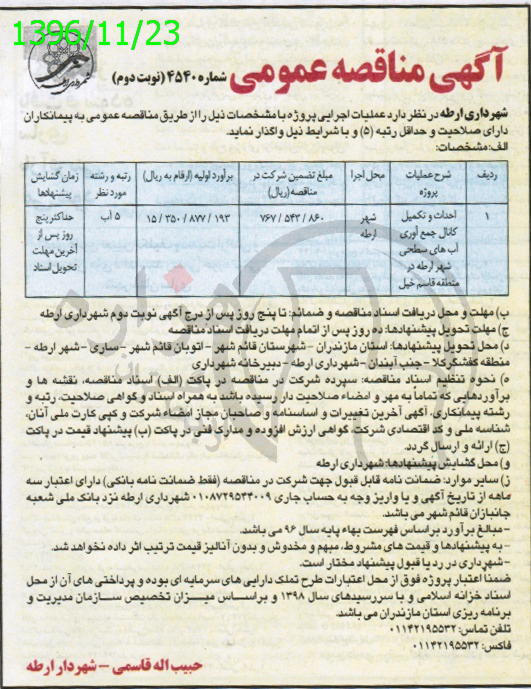 1396/11/23
آگهی مناقصه عمومی شماره ۴۵۴۰ (نوبت دوم)
شهرداری ارطه
شهرداری ارطه در نظر دارد عملیات اجرایی پروژه با مشخصات ذیل را از طریق مناقصه عمومی به پیمانکاران
دارای صلاحیت و حداقل رتبه (۵) و با شرایط ذیل واگذار نماید.
الف: مشخصات:
ردیف شرح عملیات پروژه محل اجرا مبلغ تضمین شرکت در مناقصه (ریال) برآورد اولیه (ارقام به ریال) رتبه و رشته مورد نظر زمان گشایش پیشنهادها
۱ احداث و تکمیل کانال جمع آوری آب های سطحی شهر ارطه در منطقه قاسم خیل شهر ارطه ۷۶۷/۵۴۳/۸۶۰ ۱۵/۳۵۰/۸۷۷/۱۹۳ ۵ آب حداکثر پنج روز پس از آخرین مهلت تحویل اسناد
ب) مهلت و محل دریافت اسناد مناقصه و ضمائم: تا پنج روز پس از درج آگهی نوبت دوم شهرداری ارطه
ج) مهلت تحویل پیشنهادها: ده روز پس از اتمام مهلت دریافت اسناد مناقصه
د) محل تحویل پیشنهادها: استان مازندران - شهرستان قائم شهر - اتوبان قائم شهر - ساری - شهر ارطه -
منطقه کفشگرکلا - جنب آبندان - شهرداری ارطه - دبیرخانه شهرداری
ه) نحوه تنظیم اسناد مناقصه: سپرده شرکت در مناقصه در پاکت (الف) اسناد مناقصه، نقشه ها و
برآوردهایی که تماماً به مهر و امضاء صلاحیت دار رسیده باشد به همراه اسناد و گواهی صلاحیت، رتبه و
رشته پیمانکاری، آگهی آخرین تغییرات و اساسنامه و صاحبان مجاز امضاء شرکت و کپی کارت ملی آنان،
شناسه ملی و کد اقتصادی شرکت، گواهی ارزش افزوده و مدارک فنی در پاکت (ب) پیشنهاد قیمت در پاکت
(ج) ارائه و ارسال گردد.
و) محل گشایش پیشنهادها: شهرداری ارطه
ز) سایر موارد: ضمانت نامه قابل قبول جهت شرکت در مناقصه (فقط ضمانت نامه بانکی) دارای اعتبار سه
ماهه از تاریخ آگهی و یا واریز وجه به حساب جاری ۰۱۰۸۷۲۹۵۳۴۰۰۹ شهرداری ارطه نزد بانک ملی شعبه
جانبازان قائم شهر می باشد.
- مبالغ برآورد بر اساس فهرست بهاء پایه سال ۹۶ می باشد.
- به پیشنهادها و قیمت های مشروط، مبهم و مخدوش و بدون آنالیز قیمت ترتیب اثر داده نخواهد شد.
- شهرداری در رد یا قبول پیشنهاد مختار است.
ضمنا اعتبار پروژه فوق از محل اعتبارات طرح تملک دارایی های سرمایه ای بوده و پرداختی های آن از محل
اسناد خزانه اسلامی و با سررسیدهای سال ۱۳۹۸ و براساس میزان تخصیص سازمان مدیریت و
برنامه ریزی استان مازندران می باشد.
تلفن تماس: ۰۱۱۴۲۱۹۵۵۳۲
فاکس: ۰۱۱۴۲۱۹۵۵۳۲
حبیب اله قاسمی - شهردار ارطه